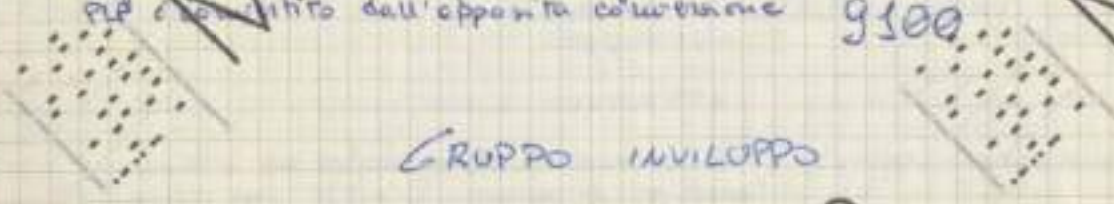 dall'apposita convenzione 9100
GRUPPO INVILUPPO